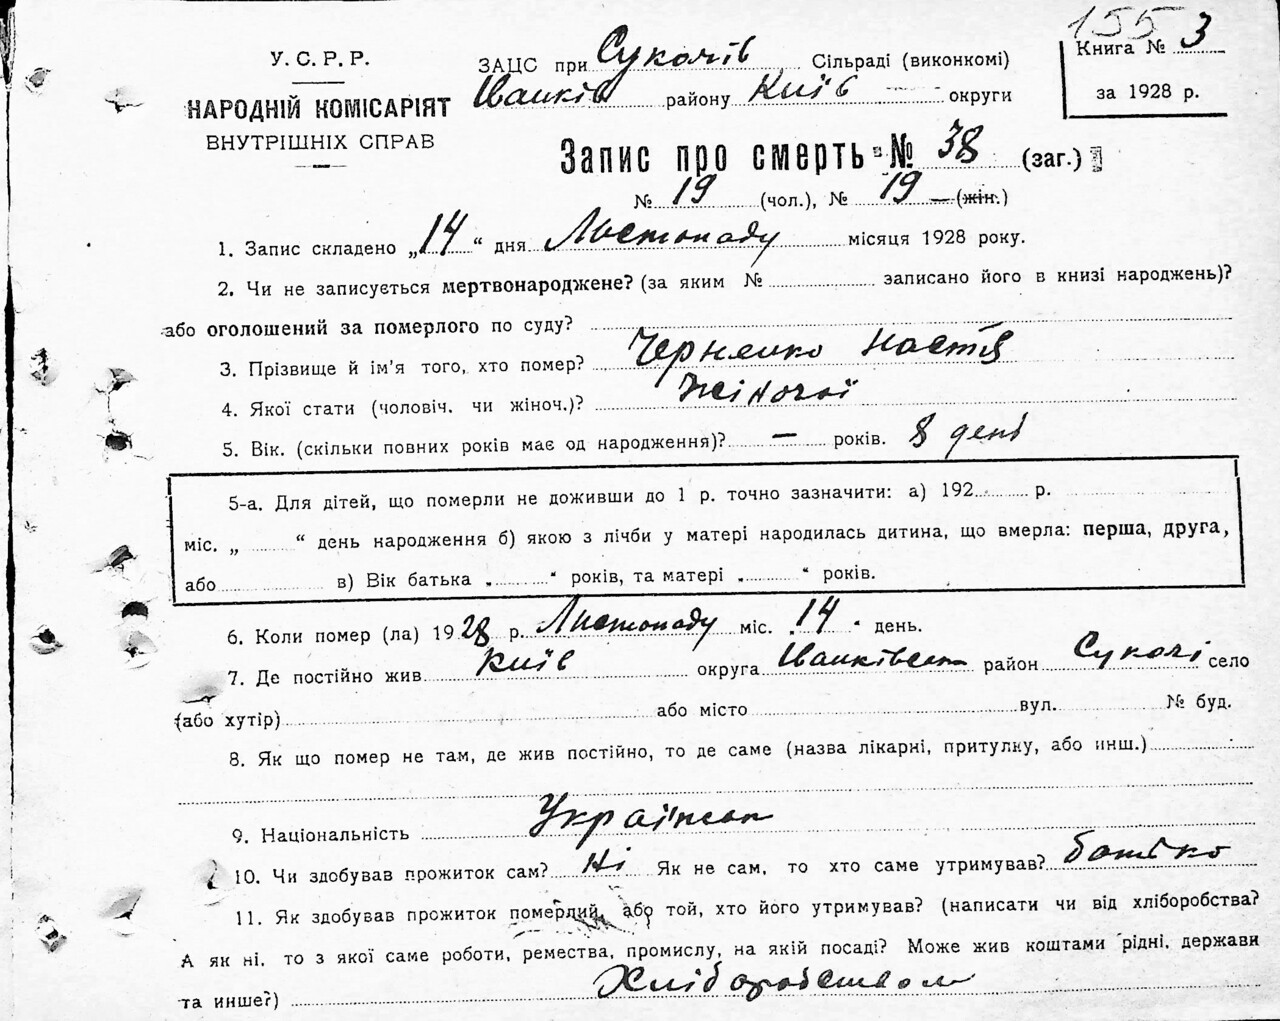 155
У. С. Р. Р.
НАРОДНІЙ КОМІСАРІЯТ
ВНУТРІШНІХ СПРАВ
ЗАЦС при Сукачів Сільраді (виконкомі)
Іванків району Київ округи
Книга № 3
за 1928 р.
Запис про смерть № 38 (заг.)
№ 19 (чол.), № 19 (жін.)
1. Запис складено „14“ дня Листопаду місяця 1928 року.
2. Чи не записується мертвонароджене? (за яким № записано його в книзі народжень)?
або оголошений за померлого по суду?
3. Прізвище й ім'я того, хто помер? Черненко Настя
4. Якої стати (чоловіч. чи жіноч.)? жіночої
5. Вік. (скільки повних років має од народження)? — років. 8 день
5-а. Для дітей, що померли не доживши до 1 р. точно зазначити: а) 192 р.
міс. „ “ день народження б) якою з лічби у матері народилась дитина, що вмерла: перша, друга,
або в) Вік батька „ “ років, та матері „ “ років.
6. Коли помер (ла) 1928 р. Листопаду міс. „14“ день.
7. Де постійно жив Київ округа Іванківськ район Сукачі село
(або хутір) або місто вул. № буд.
8. Як що помер не там, де жив постійно, то де саме (назва лікарні, притулку, або инш.)
9. Національність Українка
10. Чи здобував прожиток сам? Ні Як не сам, то хто саме утримував? батько
11. Як здобував прожиток померлий, або той, хто його утримував? (написати чи від хліборобства?
А як ні, то з якої саме роботи, ремества, промислу, на якій посаді? Може жив коштами рідні, держави
та инше?) Хліборобством